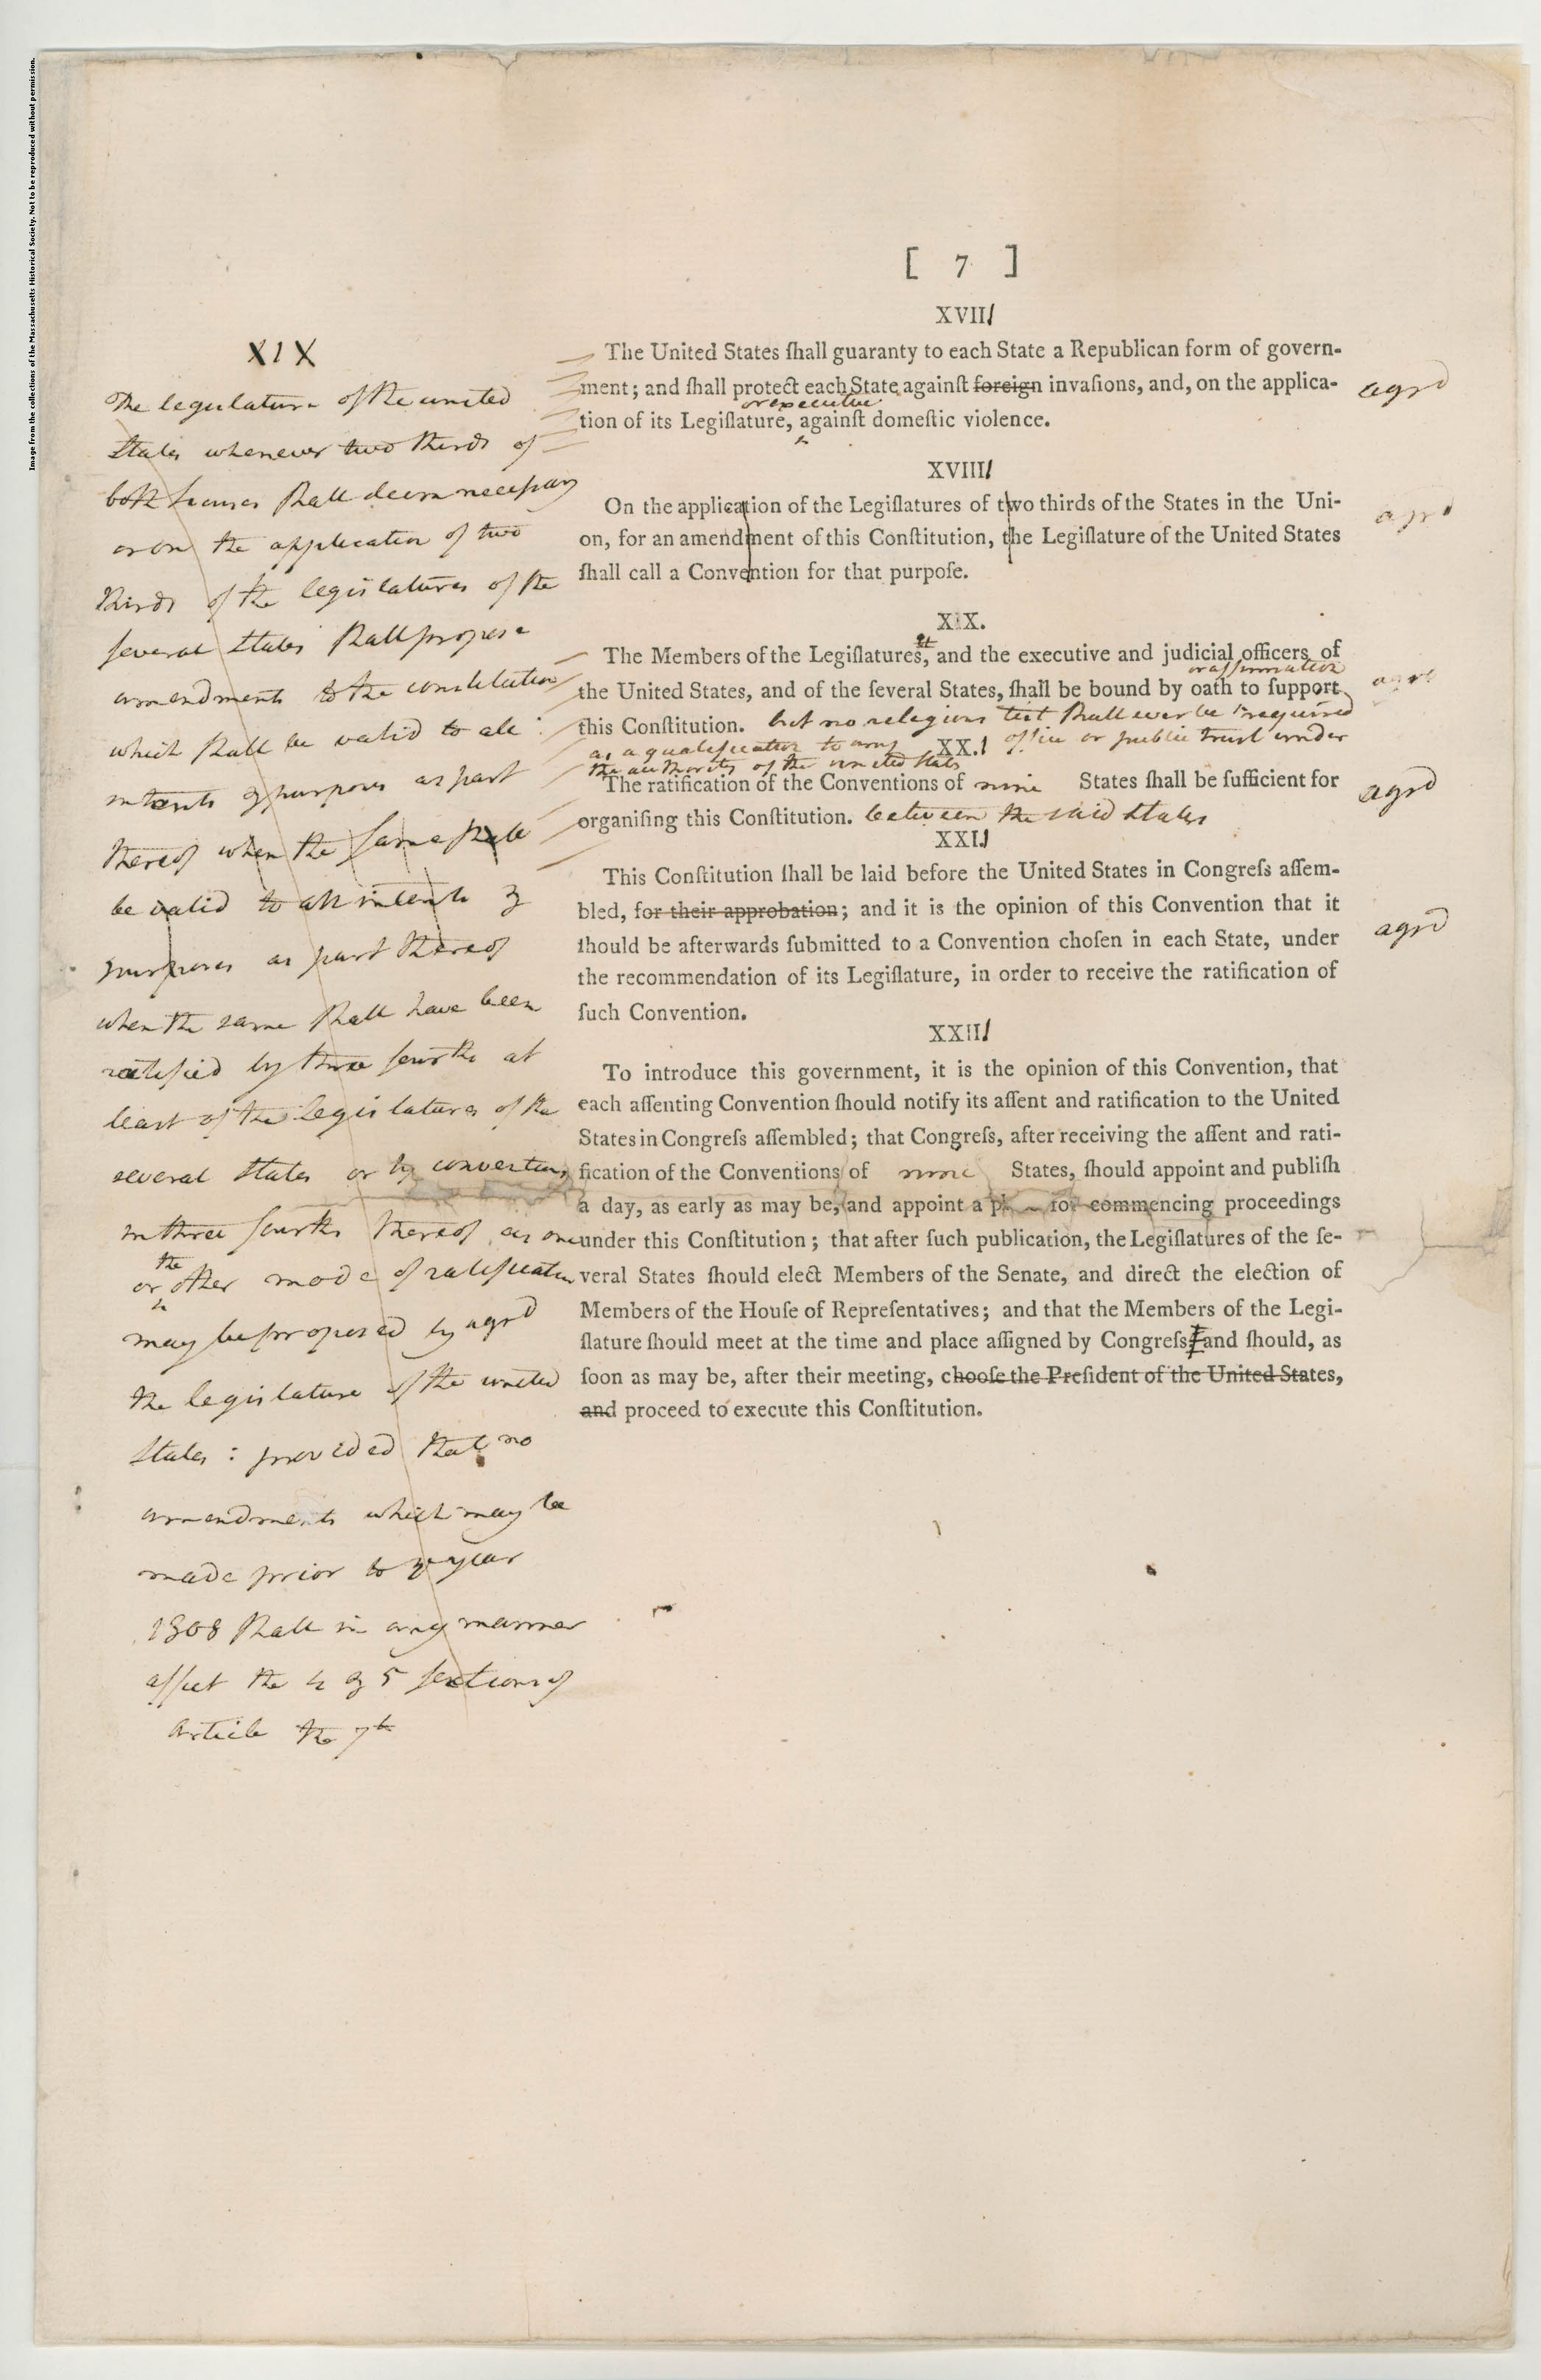 Image from the collections of the Massachusetts Historical Society. Not to be reproduced without permission.
[ 7 ]
XVIII
The United States ſhall guaranty to each State a Republican form of govern-
ment; and ſhall protect each State againſt foreign invaſions, and, on the applica-
or executive
tion of its Legiſlature, againſt domeſtic violence.
agrd
XVIIII
On the application of the Legiſlatures of two thirds of the States in the Uni-
on, for an amendment of this Conſtitution, the Legiſlature of the United States
ſhall call a Convention for that purpoſe.
agrd
XIX.
The Members of the Legiſlatures, and the executive and judicial officers of
or affirmation
the United States, and of the ſeveral States, ſhall be bound by oath to ſupport
this Conſtitution. but no religious test shall ever be required
as a qualification to any office or public trust under
the authority of the united states
agrd
XX.I
The ratification of the Conventions of nine States ſhall be ſufficient for
organiſing this Conſtitution. between the said states
agrd
XXII
This Conſtitution ſhall be laid before the United States in Congreſs aſſem-
bled, for their approbation; and it is the opinion of this Convention that it
ſhould be afterwards ſubmitted to a Convention choſen in each State, under
the recommendation of its Legiſlature, in order to receive the ratification of
ſuch Convention.
agrd
XXIII
To introduce this government, it is the opinion of this Convention, that
each aſſenting Convention ſhould notify its aſſent and ratification to the United
States in Congreſs aſſembled; that Congreſs, after receiving the aſſent and rati-
fication of the Conventions of nine States, ſhould appoint and publiſh
a day, as early as may be, and appoint a for commencing proceedings
under this Conſtitution; that after ſuch publication, the Legiſlatures of the ſe-
veral States ſhould elect Members of the Senate, and direct the election of
Members of the Houſe of Repreſentatives; and that the Members of the Legi-
ſlature ſhould meet at the time and place aſſigned by Congreſs and ſhould, as
ſoon as may be, after their meeting, chooſe the Preſident of the United States,
and proceed to execute this Conſtitution.
XIX
The legislature of the united
States whenever two thirds of
both houses shall deem necessary
or on the application of two
thirds of the legislatures of the
several states shall propose
amendments to the constitution
which shall be valid to all
intents & purposes as part
thereof when the same shall
be valid to all intents &
purposes as part thereof
when the same shall have been
ratified by three fourths at
least of the legislatures of the
several states or by conventions
in three fourths thereof as one
the
or other mode of ratification
may be proposed by agrd
the legislature of the united
states : provided that no
amendments which may be
made prior to ye year
1808 shall in any manner
affect the 4 & 5 sections of
article the 7th